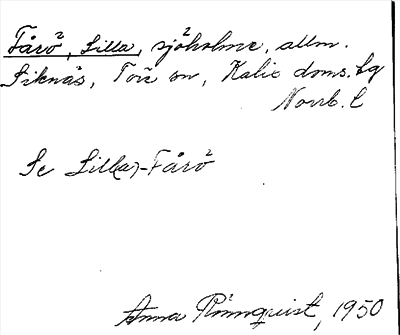 Fårö², Lilla, sjö²holme, allm.
Siknäs, Töre sn, Kalix doms. lg
Norrb. l
Se Lill(a)-Fårö²
Anna Rönnquist, 1950